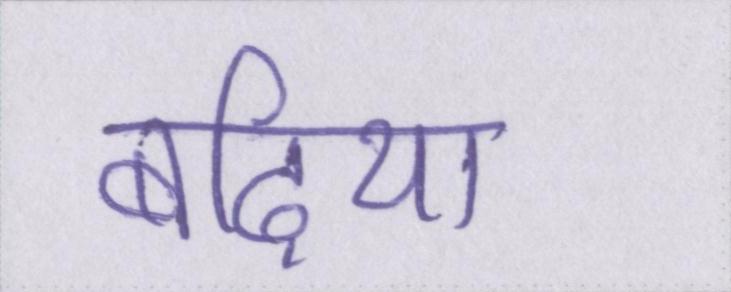 बढ़िया